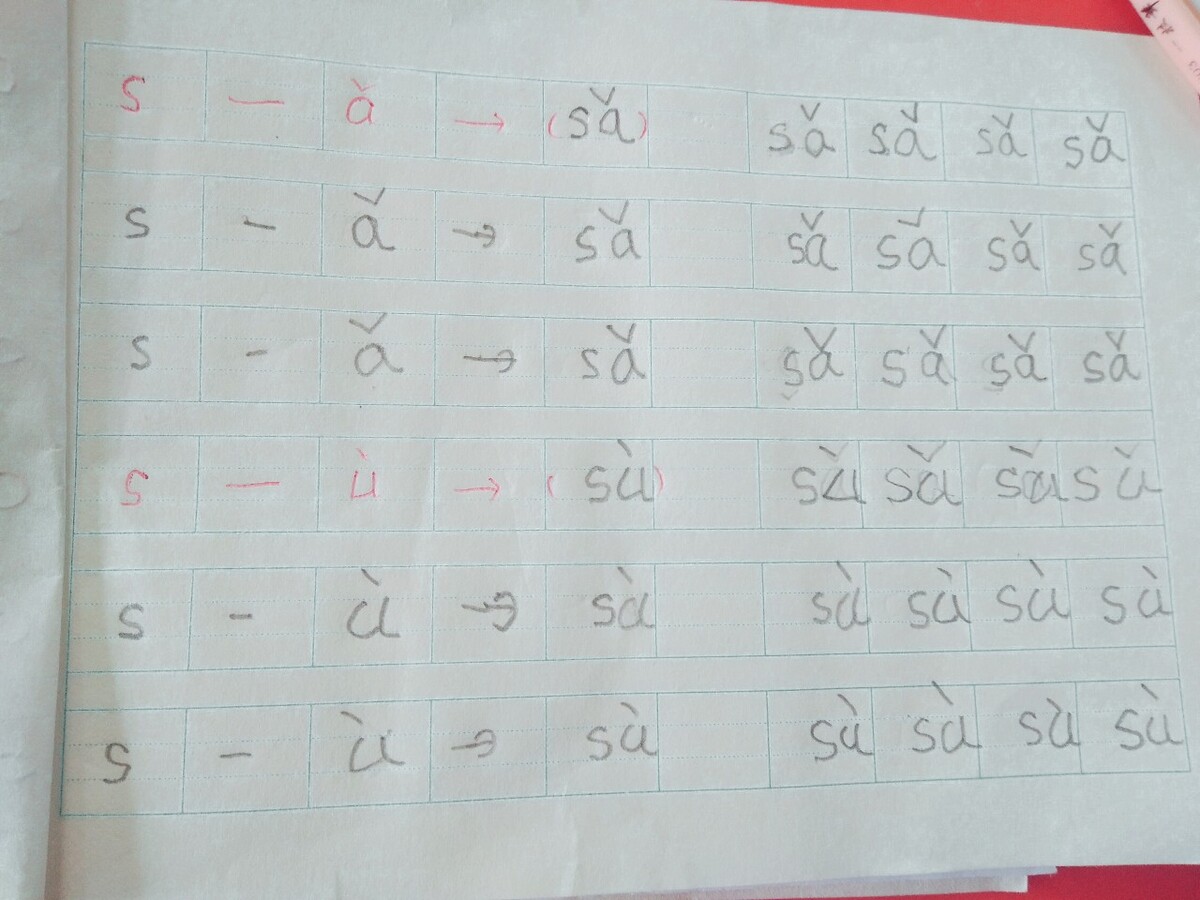 s — ǎ → (sǎ) sǎ sǎ sǎ sǎ
s - ǎ → sǎ sǎ sǎ sǎ sǎ
s - ǎ → sǎ sǎ sǎ sǎ sǎ
s — ù → (sù) sǔ sǔ sǔ sǔ
s - ù → sù sù sù sù sù
s - ù → sù sù sù sù sù